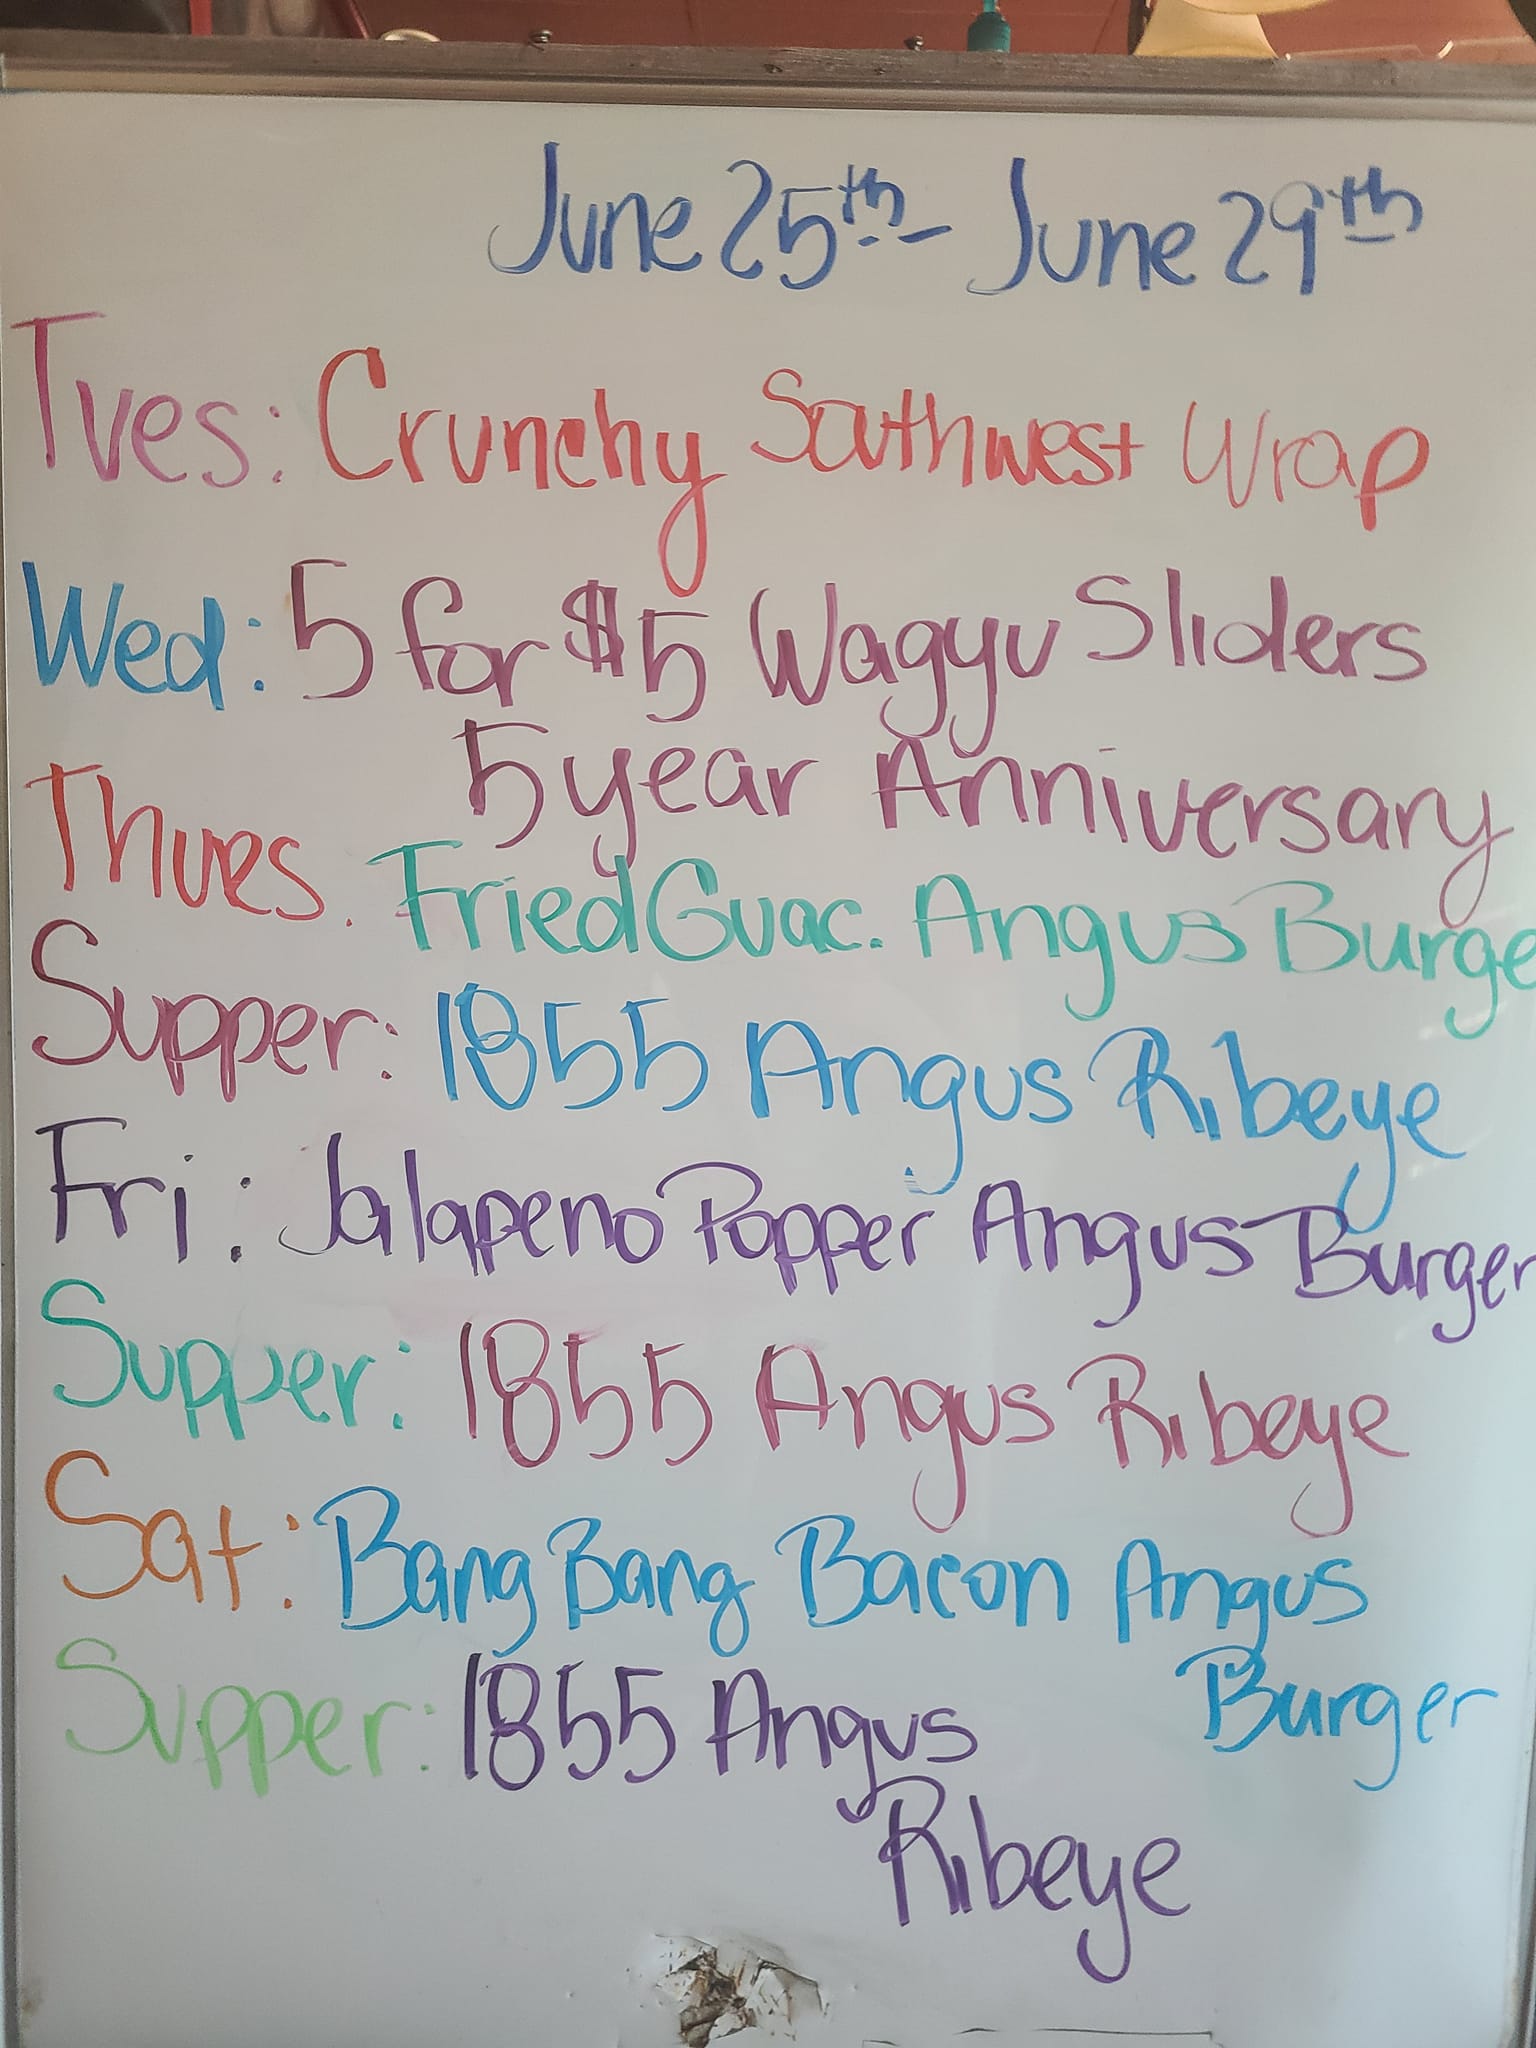 June 25th - June 29th
Tues: Crunchy Southwest Wrap
Wed: 5 for $5 Wagyu Sliders
5 year Anniversary
Thues. Fried Guac. Angus Burge
Supper: 1855 Angus Ribeye
Fri: Jalapeno Popper Angus Burger
Supper: 1855 Angus Ribeye
Sat: Bang Bang Bacon Angus
Burger
Supper: 1855 Angus
Ribeye